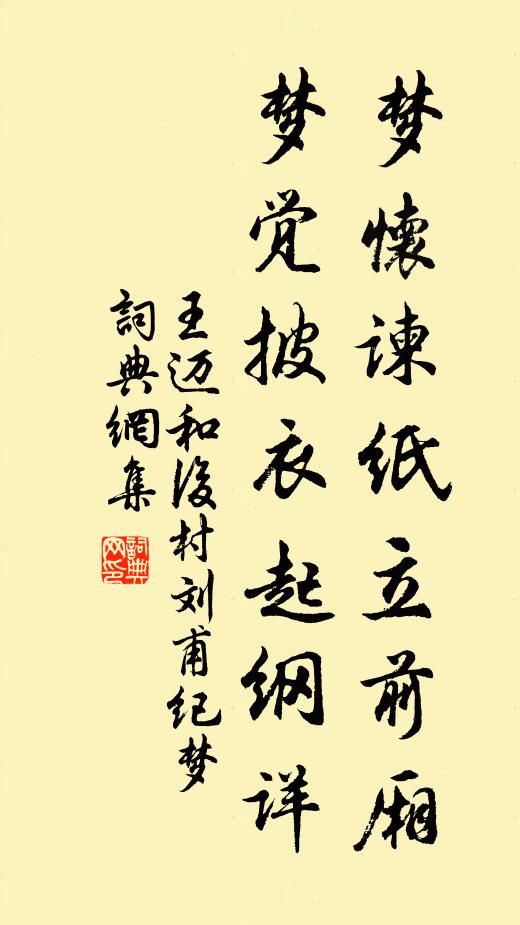 梦懷諫纸立前厢
梦觉披衣起细详
王迈和後村刘甫纪梦
詞典網集
詞典网印